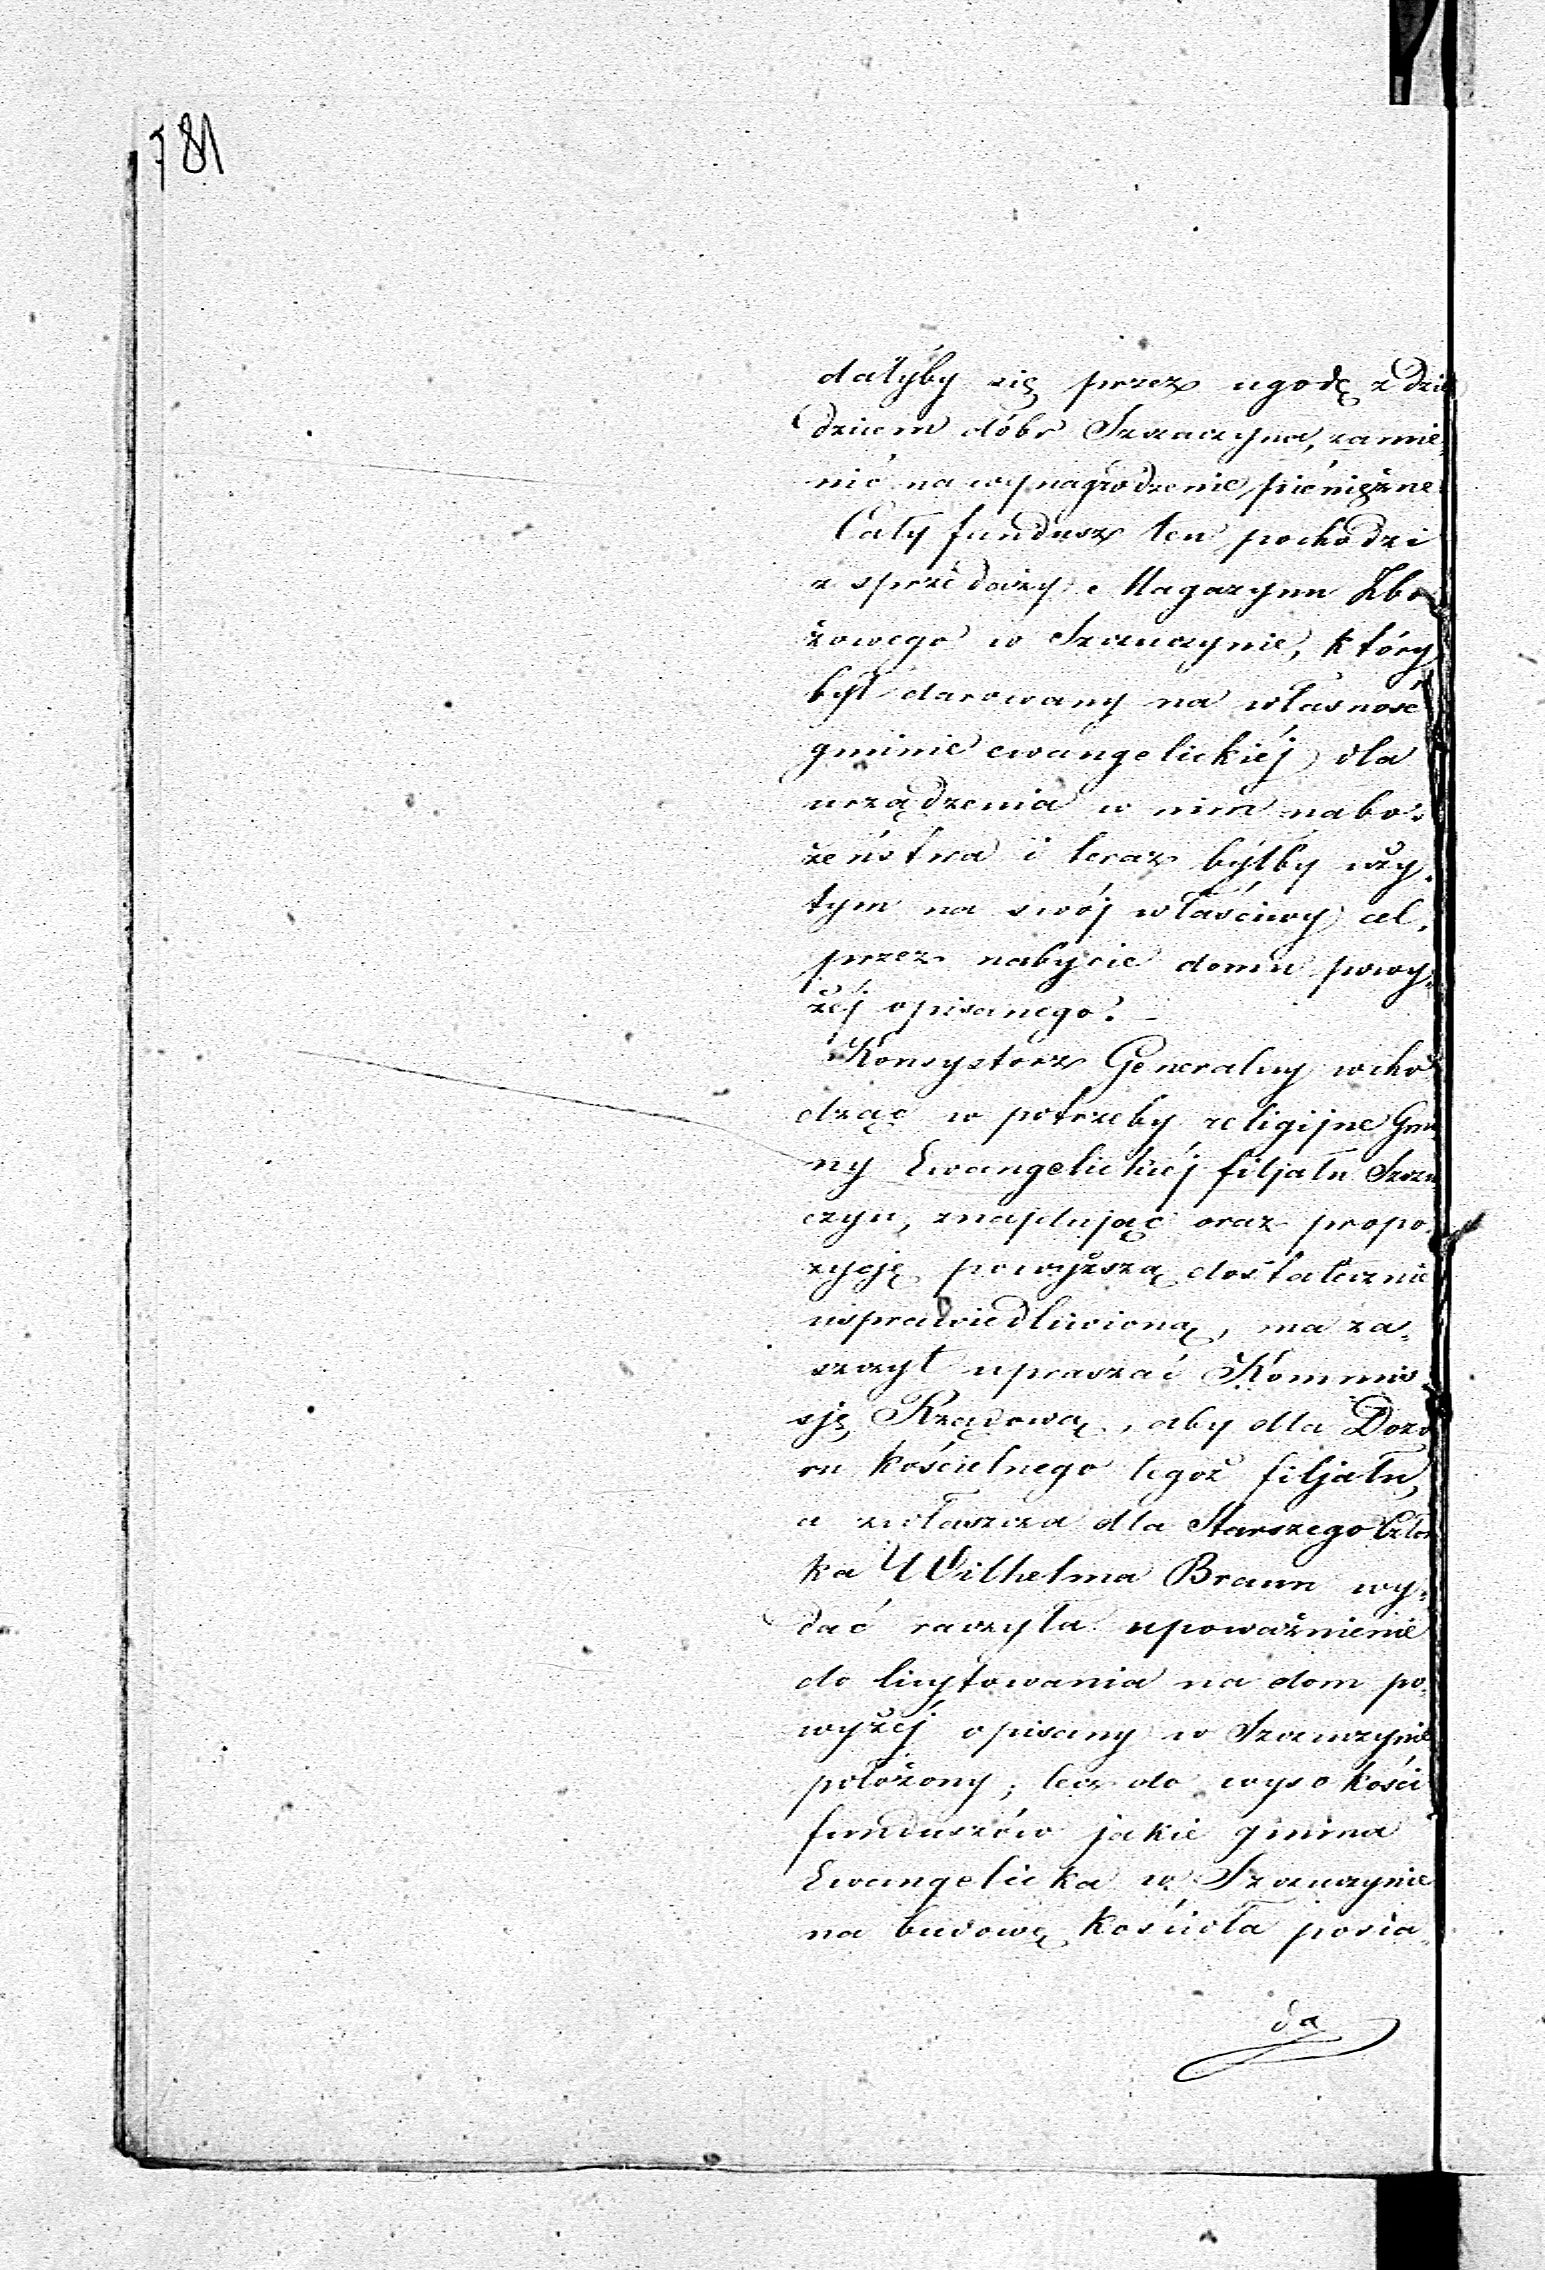 781
dałyby się przez ugodę z dzie
dzicem dóbr Szczuczyna, zamie„
nić na wynagrodzenie pieniężne
Cały fundusz ten pochodzi
z sprzedaży Magazynu Zbo
żowego w Szczuczynie, który
był darowany na własność
gminie ewangelickiéj dla
urządzenia w nim nabo„
żeństwa i teraz byłby uży„
tym na swój właściwy cel,
przez nabycie domu powy„
żéj opisanego.
Konsystorz Generalny wcho
dząc w potrzeby religijne Gmi
ny Ewangelickiéj filjału Szczu
czyn, znajdując oraz propo„
zycję powyższą dostatecznie
usprawiedliwioną, ma za„
szczyt upraszać Kommis„
sję Rządową, aby dla Dozo
ru kościelnego tegoż filjału,
a zwłaszcza dla Starszego Człon
ka Wilhelma Braun wy„
dać raczyła upoważnienie
do licytowania na dom po„
wyżéj opisany w Szczuczynie
położony; lecz do wysokości
funduszów jakie gmina
Ewangelicka w Szczuczynie
na budowę kościoła posia„
da